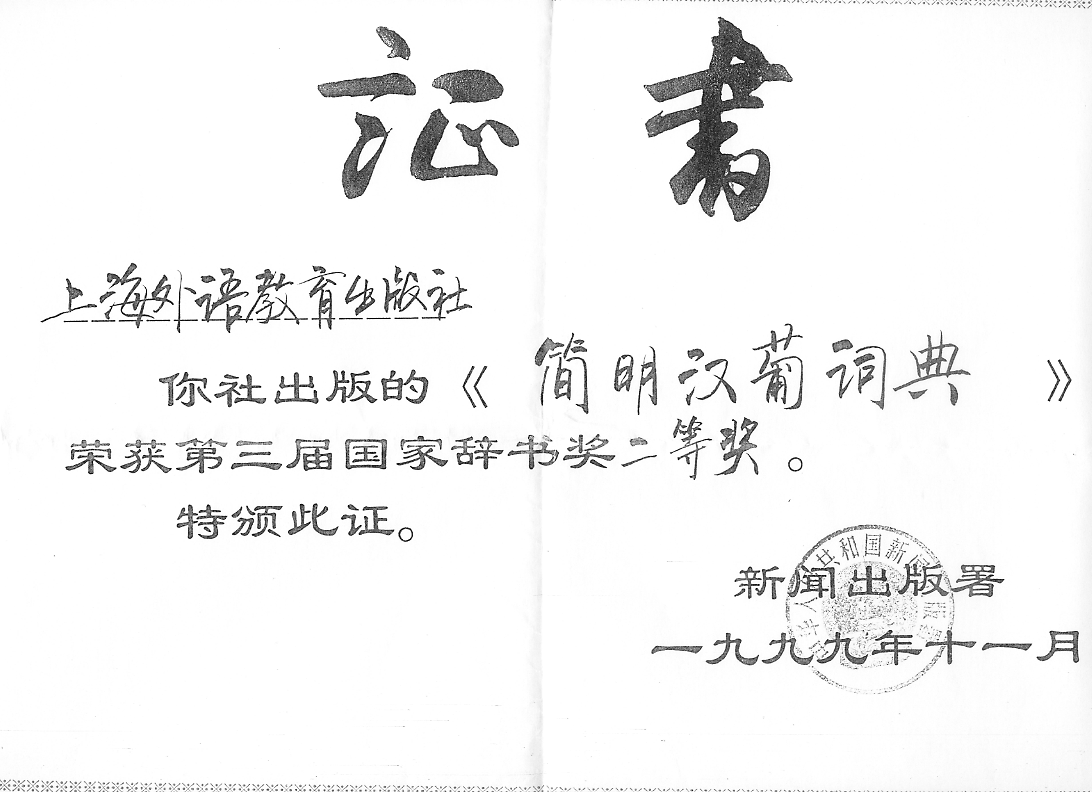 证书
上海外语教育出版社
你社出版的《简明汉葡词典》
荣获第三届国家辞书奖二等奖。
特颁此证。
新闻出版署
一九九九年十一月